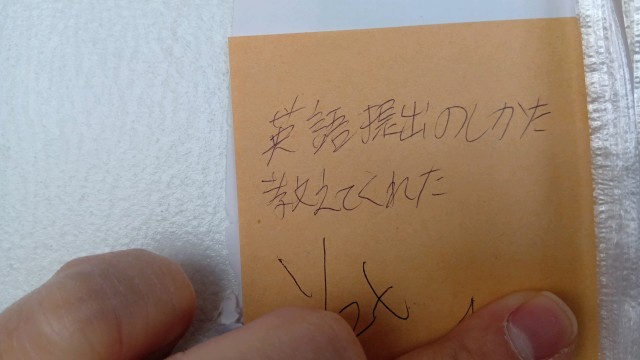 英語提出のしかた
教えてくれた